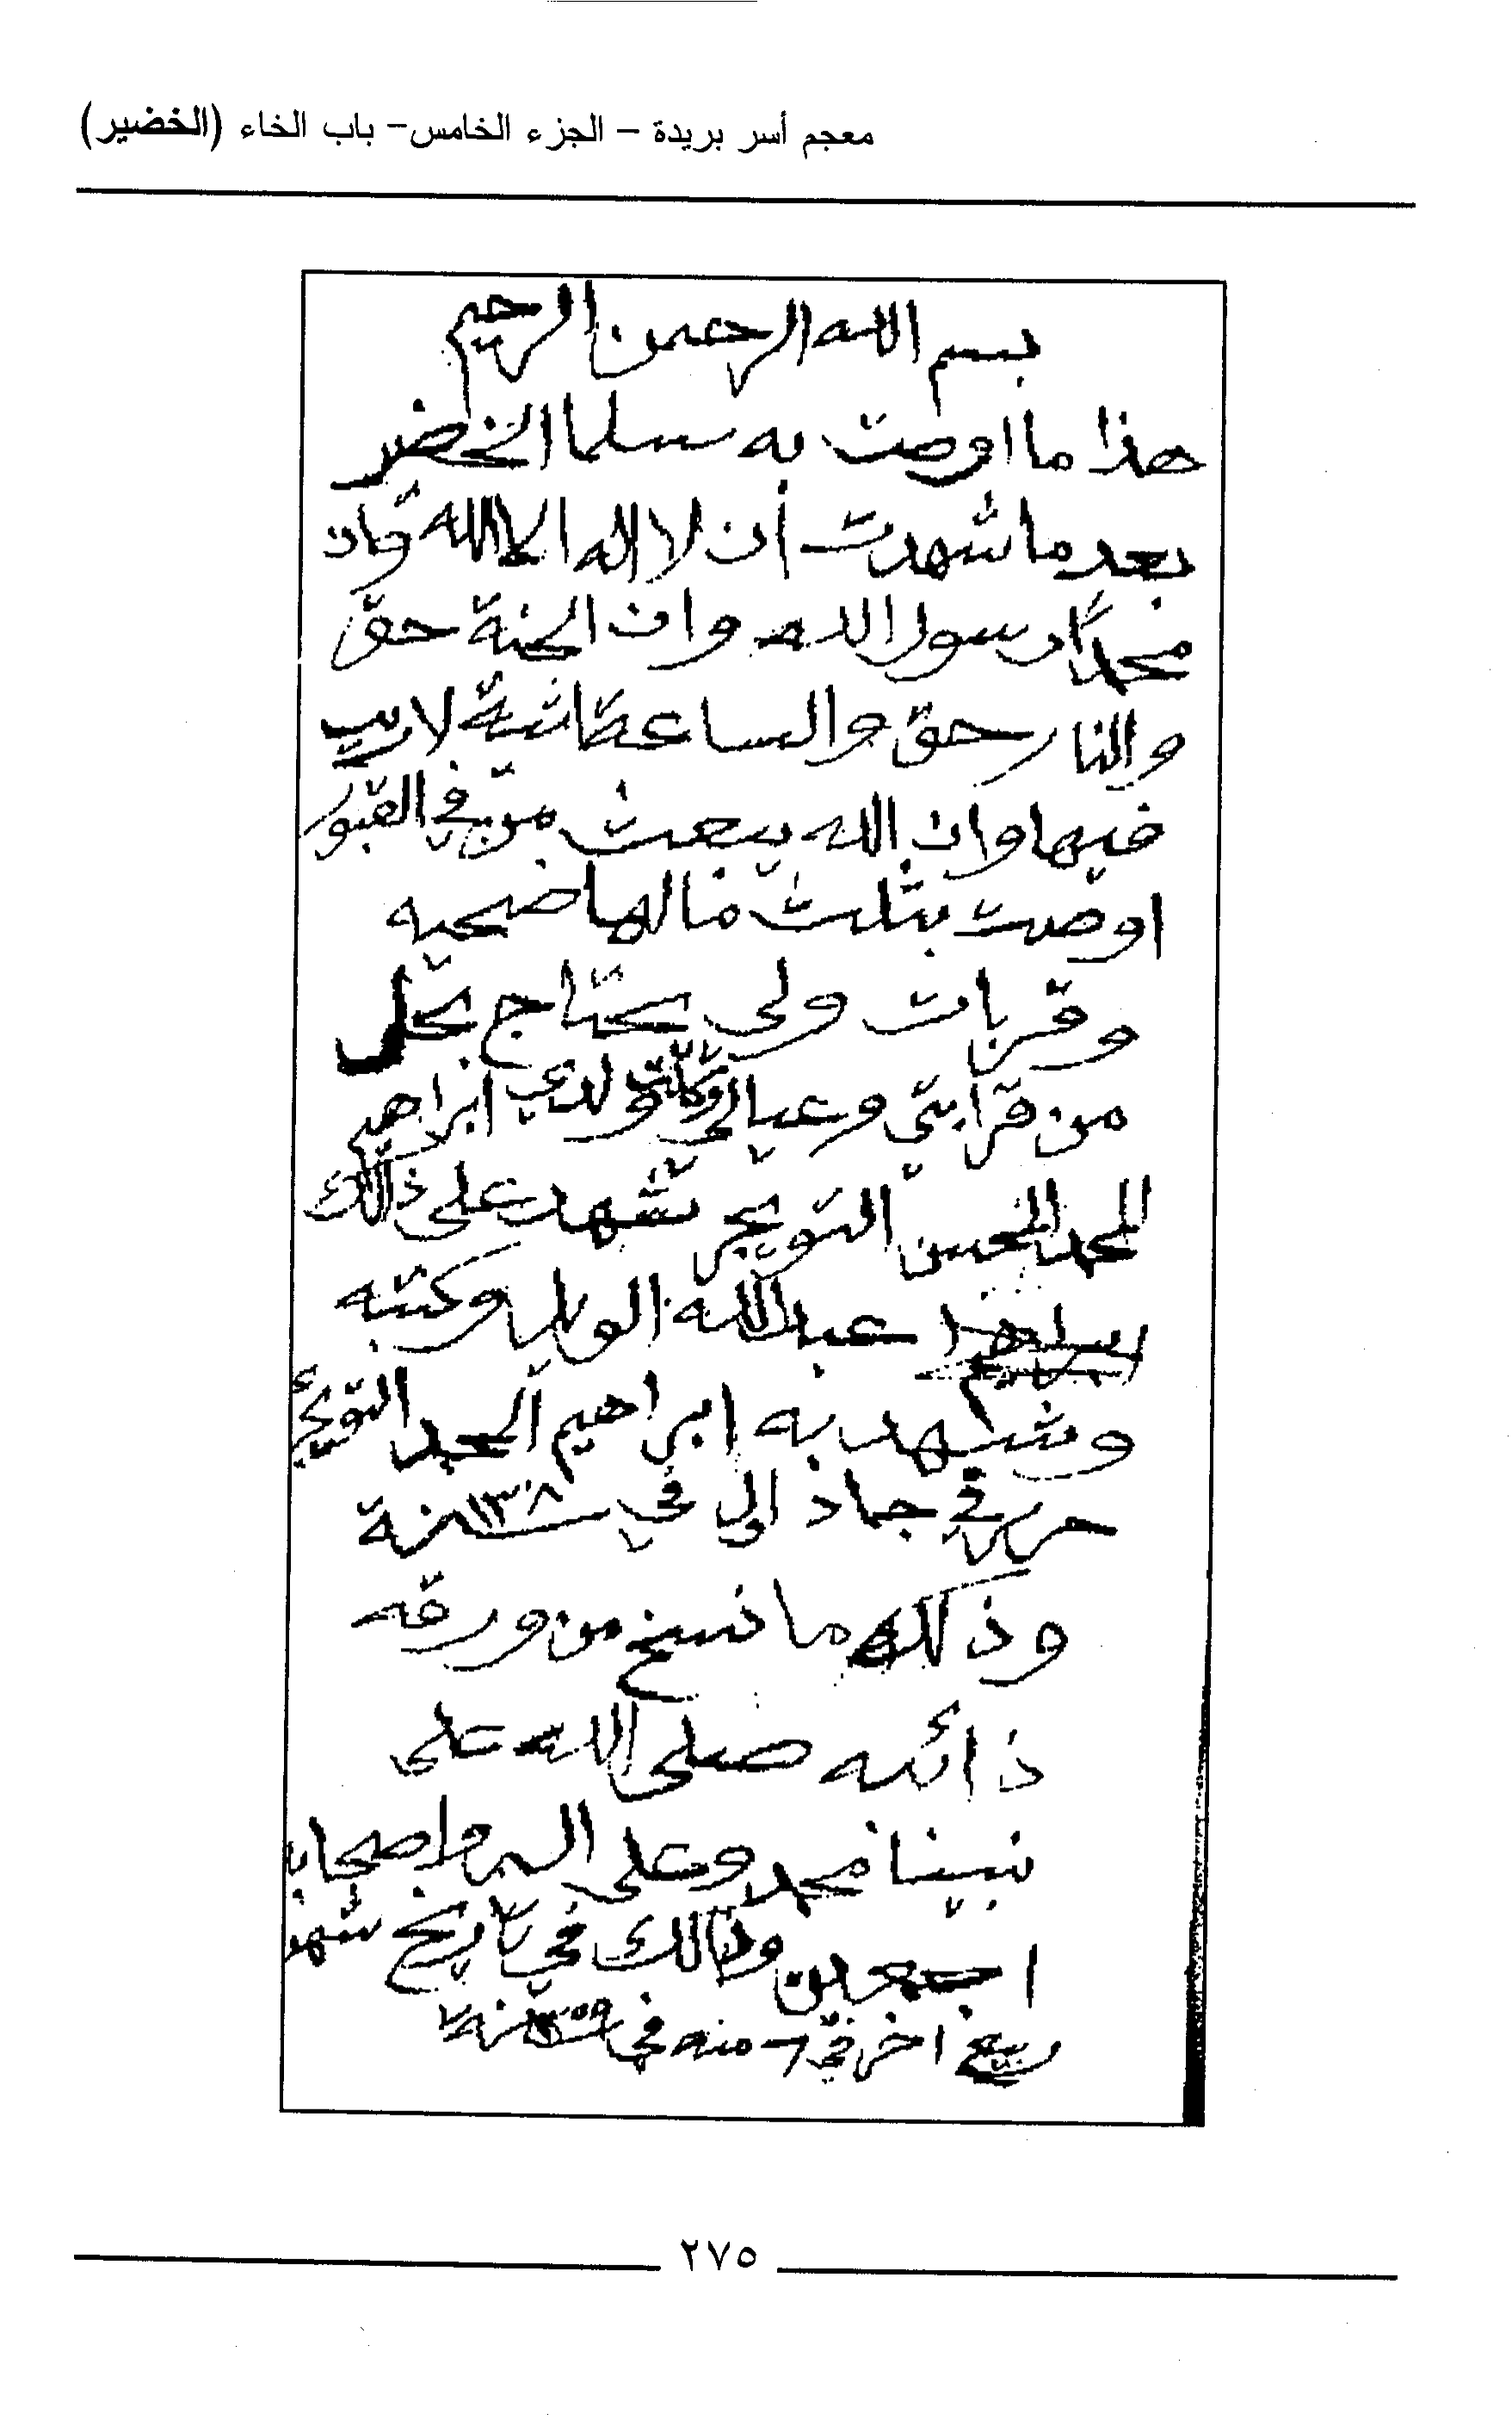 معجم أسر بريدة – الجزء الخامس – باب الخاء (الخضير)
بسم الله الرحمن الرحيم
هذا ما اوصت به سلما الخضير
بعد ما شهدت أن لا اله الا الله وان
محمدًا رسول الله وان الجنة حق
والنار حق والساعة اتية لا ريب
فيها وان الله يبعث من في القبور
اوصت بثلث مالها ضحيه
وقربات ولى يحتاج يحل
من قرابتي وعيالي وكلت ولدي ابراهيم
المحمد المحسن التويجر شهد على ذالك
عبدالله الوبلر وكتبه
وشهد به ابراهيم المحمد التويجر
حرر في جماد اول في ١٣٠٨ سنة
وذلك ما نسخ من ورقه
ذائله صلى الله على
نبينا محمد وعلى اله واصحابه
اجمعين وذالك في تاريخ شهر
ربيع اخر في ٦ منه في ١٣٥٩ سنه
٢٧٥